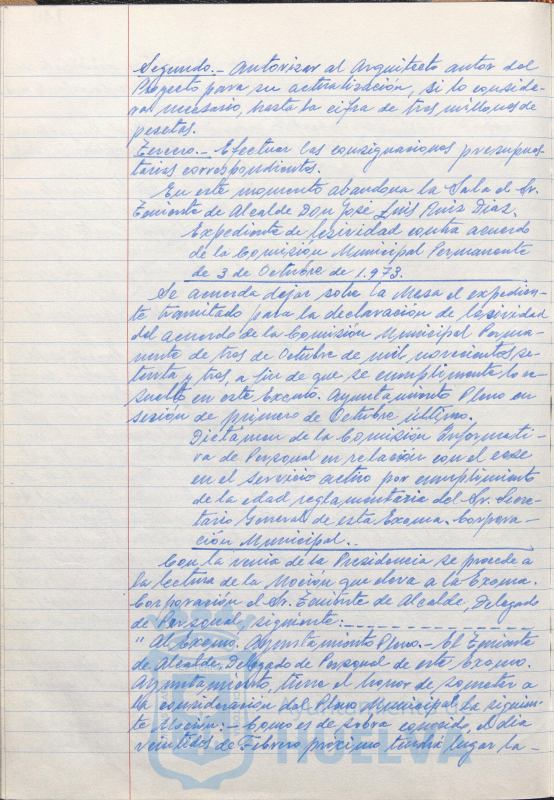 Segundo.- Autorizar al Arquitecto autor del
Proyecto para su actualización, si lo conside-
ra necesario, hasta la cifra de tres millones de
pesetas.
Tercero.- Efectuar las consignaciones presupues-
tarias correspondientes.
En este momento abandona la Sala el Sr.
Teniente de Alcalde Don José Luis Ruiz Diaz.
Expediente de lesividad contra acuerdo
de la Comisión Municipal Permanente
de 3 de Octubre de 1.973.
Se acuerda dejar sobre la Mesa el expedien-
te tramitado para la declaración de lesividad
del acuerdo de la Comisión Municipal Perma-
nente de tres de Octubre de mil novecientos se-
tenta y tres, a fin de que se cumplimente lo re-
suelto en este Excmo. Ayuntamiento Pleno en
sesión de primero de Octubre último.
Dictámen de la Comisión Informati-
va de Personal en relación con el cese
en el servicio activo por cumplimiento
de la edad reglamentaria del Sr. Secre-
tario General de esta Excma. Corpora-
ción Municipal.-
Con la venia de la Presidencia se procede a
la lectura de la Moción que eleva a la Excma.
Corporación el Sr. Teniente de Alcalde, Delegado
de Personal, siguiente:
"Al Excmo. Ayuntamiento Pleno.- El Teniente
de Alcalde, Delegado de Personal de este Excmo.
Ayuntamiento, tiene el honor de someter a
la consideración del Pleno Municipal la siguien-
te Moción:- Como es de sobra conocido, el día
veintidos de Febrero próximo tendrá lugar la-
HUELVA